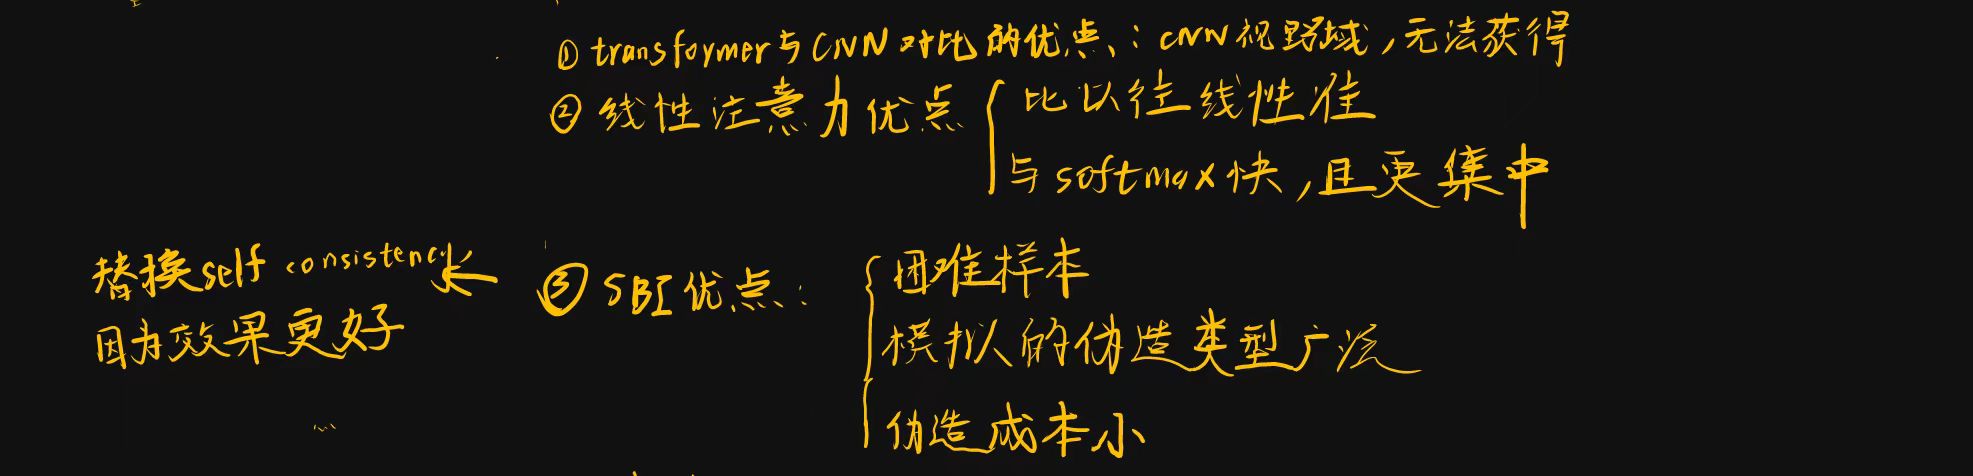 ① transformer与CNN对比的优点：CNN视野域,无法获得
② 线性注意力优点
比以往线性准
与softmax快,且更集中
替换self consistency
因为效果更好
③ SBI优点：
困难样本
模拟的伪造类型广泛
伪造成本小